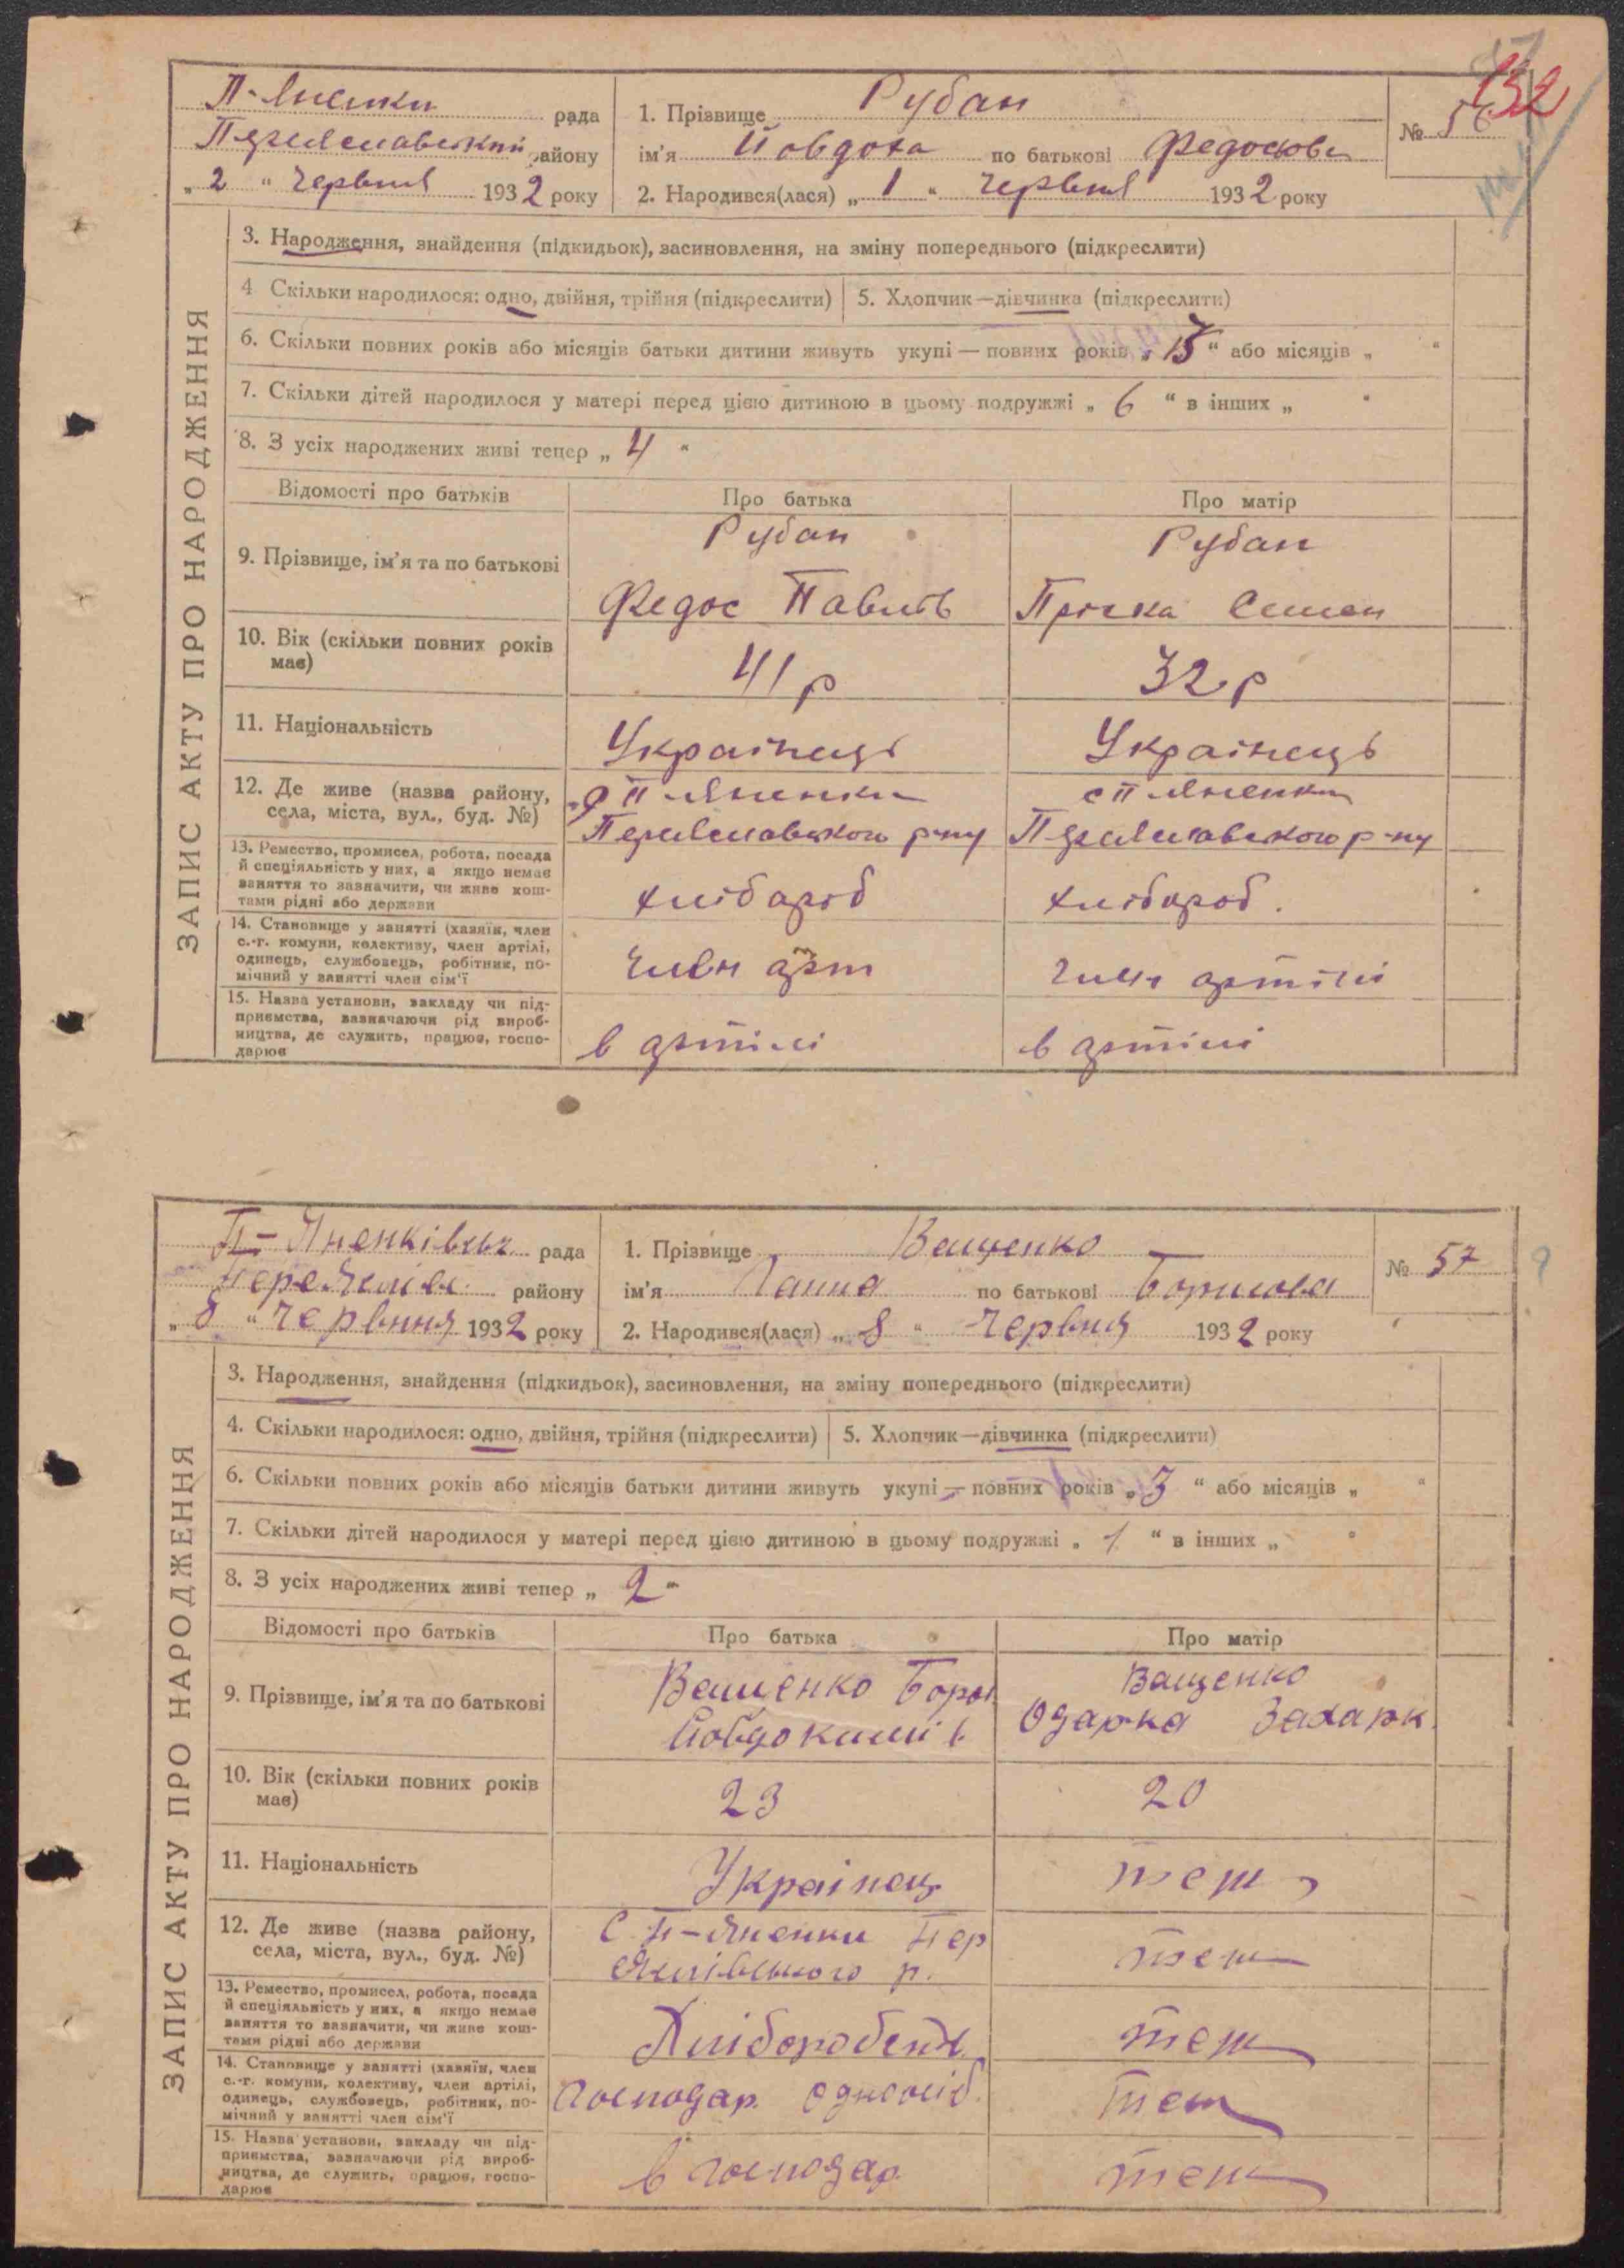 132
П-Яненки рада
Переяславський району
„ 2 “ червня 1932 року
1. Прізвище Рубан
ім'я Йовдоха по батькові Федосовн
2. Народився(лася) „ 1 “ червня 1932 року
№ 56
ЗАПИС АКТУ ПРО НАРОДЖЕННЯ
3. Народження, знайдення (підкидьок), засиновлення, на зміну попереднього (підкреслити)
4 Скільки народилося: одно, двійня, трійня (підкреслити) 5. Хлопчик—дівчинка (підкреслити)
6. Скільки повних років або місяців батьки дитини живуть укупі — повних років „ 15 “ або місяців „ “
7. Скільки дітей народилося у матері перед цією дитиною в цьому подружжі „ 6 “ в інших „ “
8. З усіх народжених живі тепер „ 4 “
Відомості про батьків Про батька Про матір
9. Прізвище, ім'я та по батькові
Рубан Рубан
Федос Павлов Пріска Семен
10. Вік (скільки повних років
має)
41 р 32 р
11. Національність
Українець Українець
12. Де живе (назва району,
села, міста, вул., буд. №)
с П Яненки с П Яненки
Переяславського р-ну Переяславського р-ну
13. Ремество, промисел, робота, посада
й спеціяльність у них, а якщо немає
заняття то зазначити, чи живе кош-
тами рідні або держави
хлібароб хлібароб.
14. Становище у занятті (хазяїн, член
с.-г. комуни, колективу, член артілі,
одинець, службовець, робітник, по-
мічний у занятті член сім'ї
член арт член артілі
15. Назва установи, закладу чи під-
приємства, зазначаючи рід вироб-
ництва, де служить, працює, госпо-
дарює
в артілі в артілі
П-Яненківськ рада
району
„ 8 “ червння 1932 року
1. Прізвище Ващенко
ім'я Ганна по батькові Борисова
2. Народився(лася) „ 8 “ червня 1932 року
№ 57
ЗАПИС АКТУ ПРО НАРОДЖЕННЯ
3. Народження, знайдення (підкидьок), засиновлення, на зміну попереднього (підкреслити)
4. Скільки народилося: одно, двійня, трійня (підкреслити) 5. Хлопчик—дівчинка (підкреслити)
6. Скільки повних років або місяців батьки дитини живуть укупі — повних років „ 3 “ або місяців „ “
7. Скільки дітей народилося у матері перед цією дитиною в цьому подружжі „ 1 “ в інших „ “
8. З усіх народжених живі тепер „ 2 “
Відомості про батьків Про батька Про матір
9. Прізвище, ім'я та по батькові
Ващенко Борис Ващенко
Йовдокимів Одарка Захарк
10. Вік (скільки повних років
має)
23 20
11. Національність
Українец теж
12. Де живе (назва району,
села, міста, вул., буд. №)
С П-Яненки Пер теж
р.
13. Ремество, промисел, робота, посада
й спеціяльність у них, а якщо немає
заняття то зазначити, чи живе кош-
тами рідні або держави
теж
14. Становище у занятті (хазяїн, член
с.-г. комуни, колективу, член артілі,
одинець, службовець, робітник, по-
мічний у занятті член сім'ї
господар. односіб. теж
15. Назва установи, закладу чи під-
приємства, зазначаючи рід вироб-
ництва, де служить, працює, госпо-
дарює
в господар теж